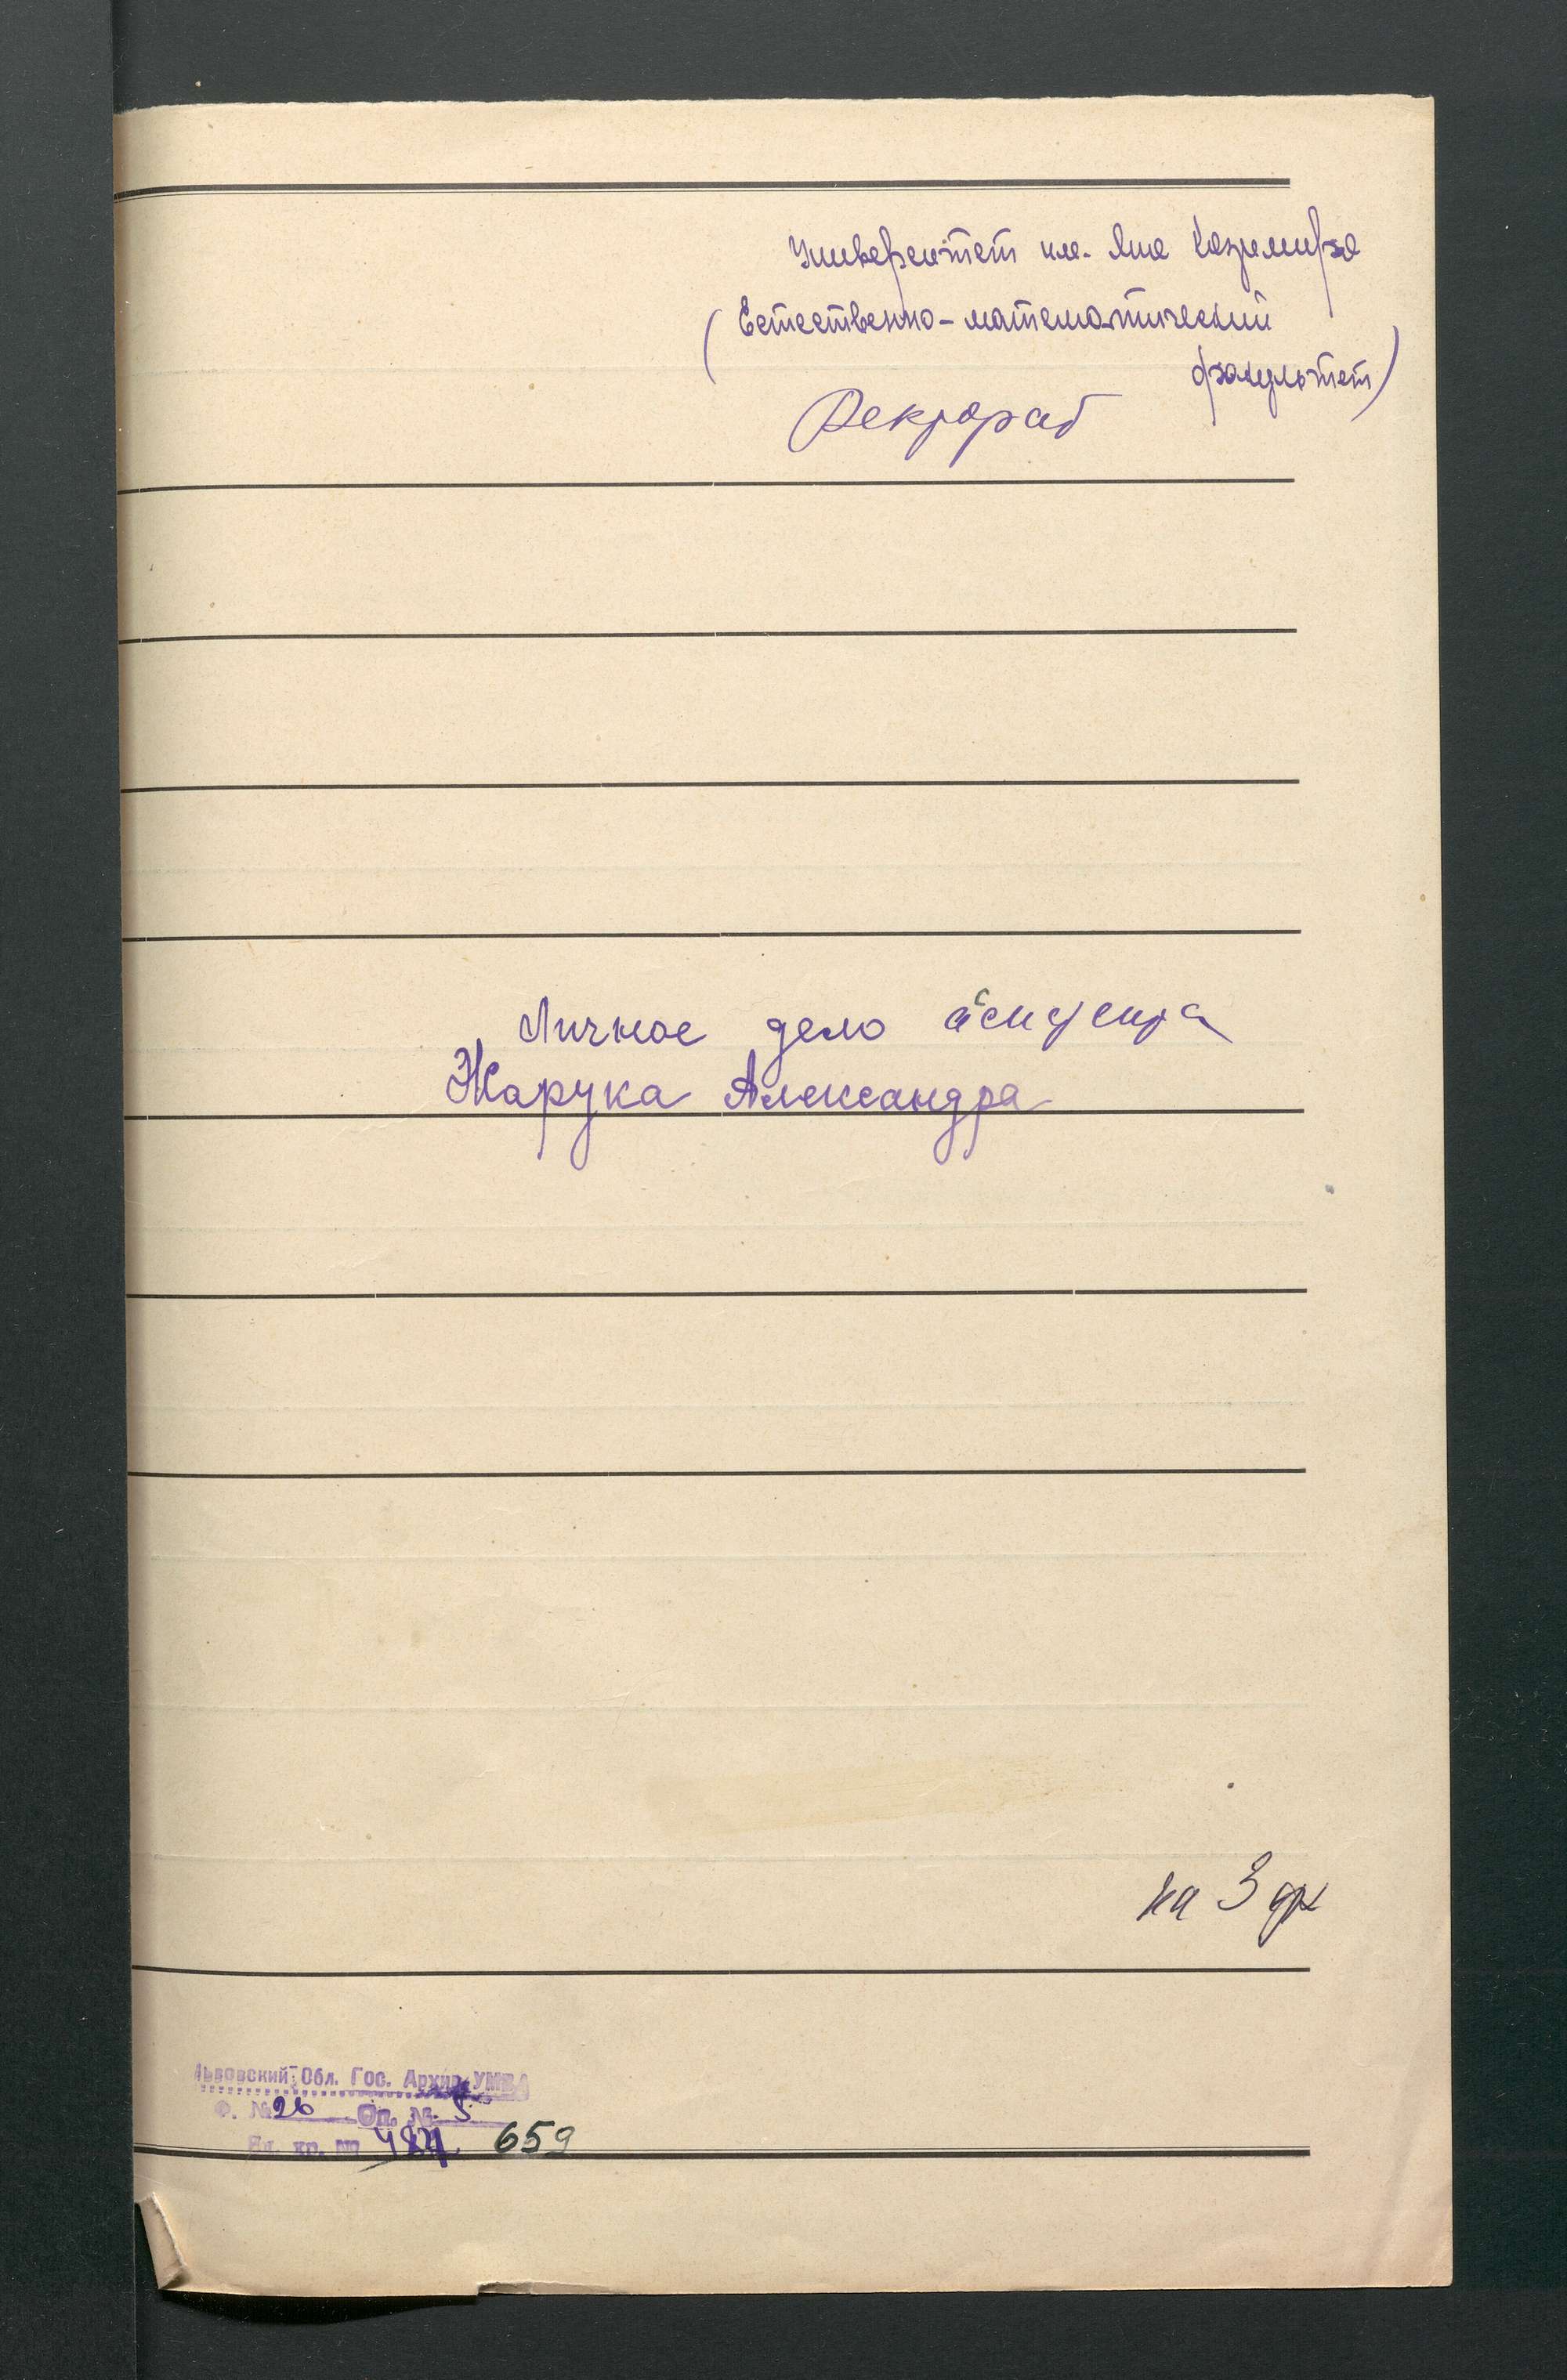 Университет им. Яна Казимира
(Естественно-математический
факультет)
Ректорат
Личное дело
Жарука Александра
на 3 лл
Львовский Обл. Гос. Архив УМВД
Ф. № 26 Оп. № 5
Ед. хр. № 659